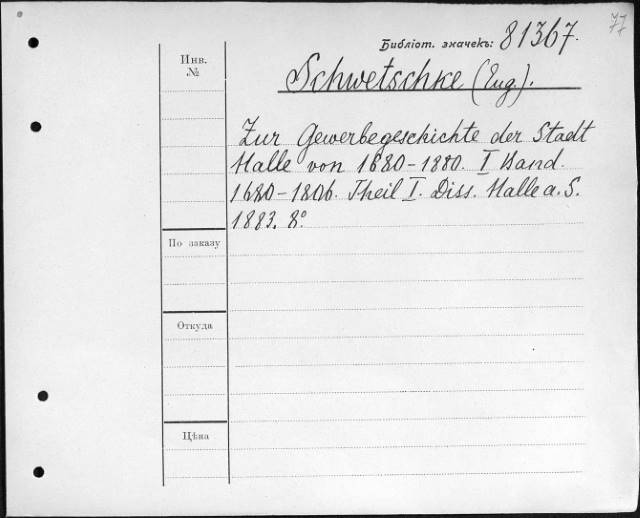 77
Библіот. значекъ: 81367.
Инв.
№
Schwetschke (Eug.).
Zur Gewerbegeschichte der Stadt
Halle von 1680-1880. I Band.
1680-1806. Theil I. Diss. Halle a. S.
1883. 8°
По заказу
Откуда
Цѣна